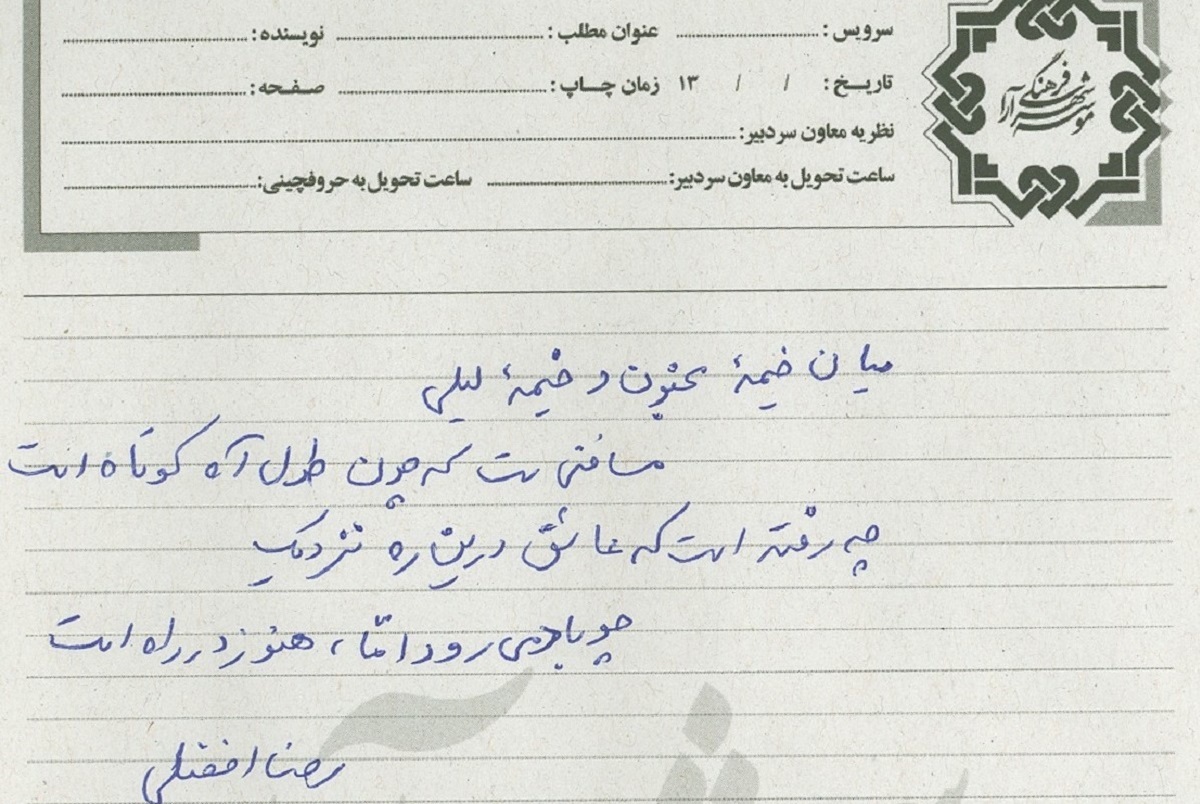 سرویس : عنوان مطلب : نویسنده :
تاریخ : / / ۱۳ زمان چاپ : صفحه :
نظریه معاون سردبیر:
ساعت تحویل به معاون سردبیر: ساعت تحویل به حروفچینی:
موسسه فرهنگی شهرآرا
میان خیمهٔ مجنون و خیمهٔ لیلی
مسافتی ست که چون طول آه کوتاه است
چه رفته است که عاشق درین ره نزدیک
چو باد می رود امّا، هنوز در راه است
رضا افضلی